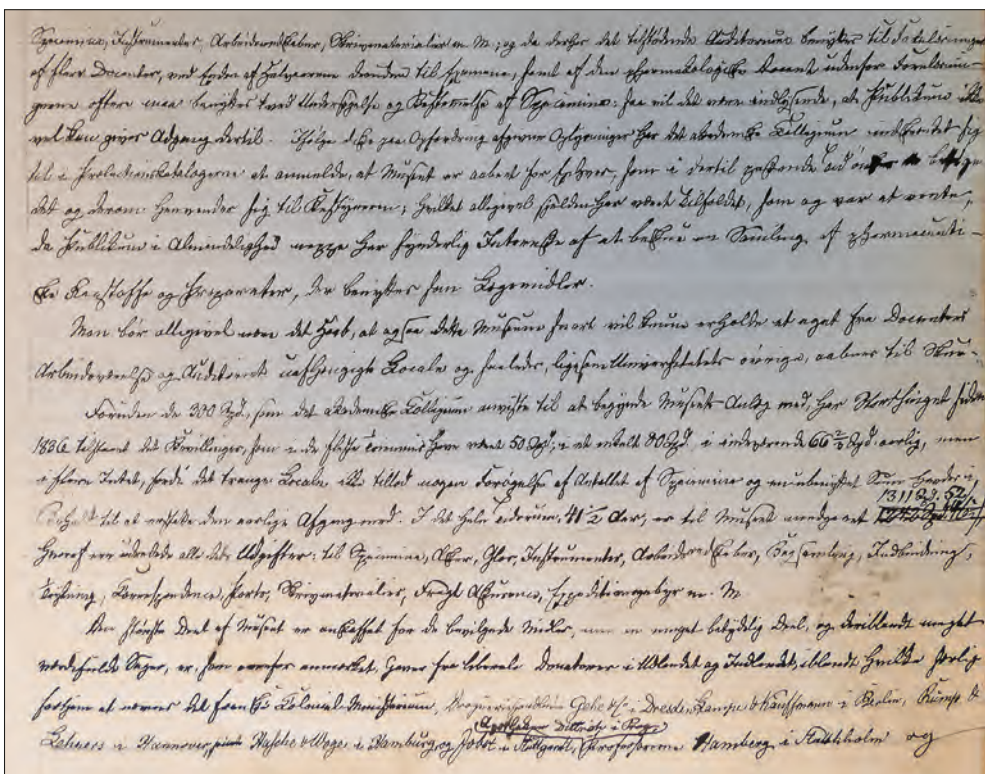 Specimina, Instrumenter, Arbeidsredskaber, Skrivematerialier m. M; og da derhos det tilstødende Auditorium benyttes til Forelæsninger
af flere Docenter, ved Enden af Halvaarene desuden til Examene, samt af den pharmakologiske Docent udenfor Forelæsnin-
gerne oftere maa benyttes ved Undersøgelse og Bestemmelse af Specimina: saa vil det være indlysende, at Publikum ikke
vel kan gives Adgang dertil. Ifølge disse paa Opfordring afgivne Oplysninger har det akademiske Collegium indskrænket sig
til i Prælectionskatalogerne at anmelde, at Museet er aabent for Enhver, som i dertil passende Tid ønsker at besøge
det og derom henvender sig til Bestyreren; hvilket allegevel sjelden har været Tilfældet, som og var at vente,
da Publikum i Almindelighed neppe har synderlig Interesse af at besee en Samling af pharmaceuti-
ske Raastoffe og Præparater, der benyttes som Lægemidler.
Man bør allegevel nære det Haab, at ogsaa dette Museum snart vil kunne erholde et eget fra Docenters
Arbeidsværelse og Auditoriet uafhængigt Locale og saaledes, ligesom Universitetets øvrige, aabnes til Skue-
Foruden de 300 Spd., som det akademiske Collegium anviste til at begynde Museets Anlæg med, har Storthinget siden
1836 tilstaaet det Bevillinger, som i de fleste Terminer have været 50 Spd; i et enkelt 80 Spd. i indeværende 66 2/3 Spd. aarlig, men
i flere Intet, fordi det trange Locale ikke tillod nogen Forøgelse af Antallet af Specimina og en ubenyttet Sum havdes i
Behold til at erstatte den aarlige Afgang med. I det Hele i disse 41 1/2 Aar, er til Museet medgaaet 1311 Spd. 52
hvoraf ere udredede alle dets Udgifter: til Specimina, Skabe, Glas, Instrumenter, Arbeidsredskaber, Indbinding,
Correspondence, Porto, Skrivematerialier, Fragt, Assurance, Expeditionsgebyr m. M.
Den største Deel af Museet er anskaffet for de bevilgede Midler, men en meget betydelig Deel, og deriblandt meget
værdifulde Sager, er, som ovenfor anmærket, Gaver fra liberale Donatorer i Udlandet og Indlandet, iblandt hvilke særlig
fortjene at nævnes det franske Colonial-Ministerium, Gehe & Co i Dresden, Lampe & Kauffmann i Berlin, Rump &
Apotheker Dittrich i Prag
Lehners i Hannover, Hasche & Woge i Hamburg, og Jobst i Stuttgardt, Professorerne Hamberg i Stockholm og